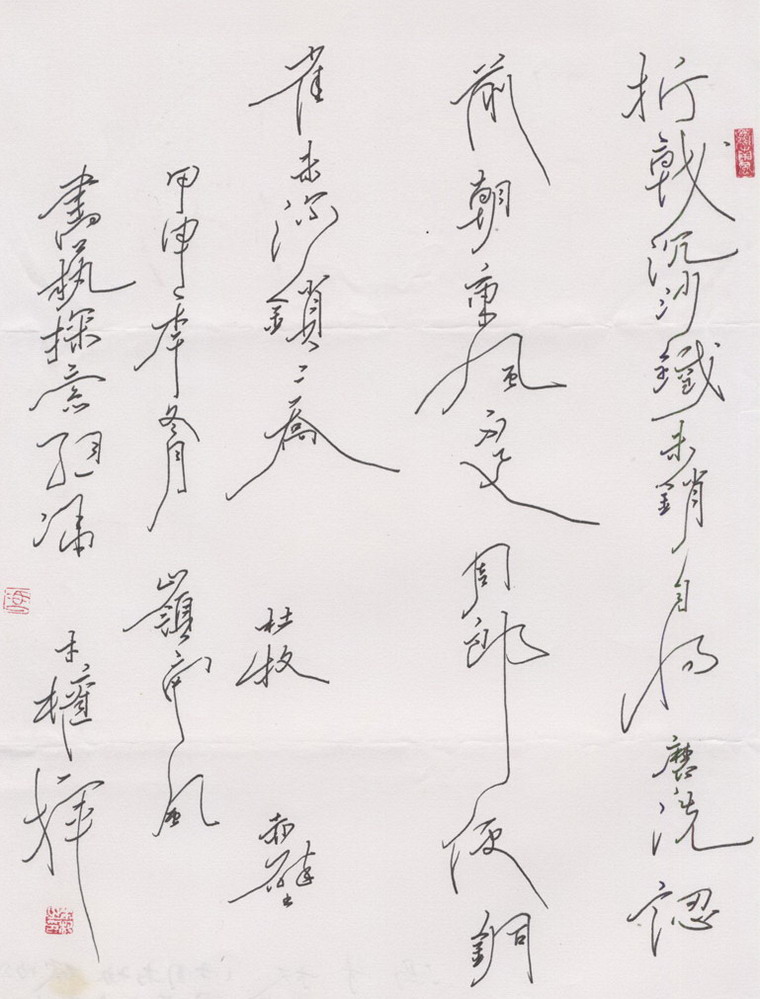 折戟沉沙鐵未銷自將磨洗認
前朝東風不與周郎便銅
雀春深鎖二喬 杜牧 赤壁
甲申年冬月 嶺南風
書藝探索組 權揮